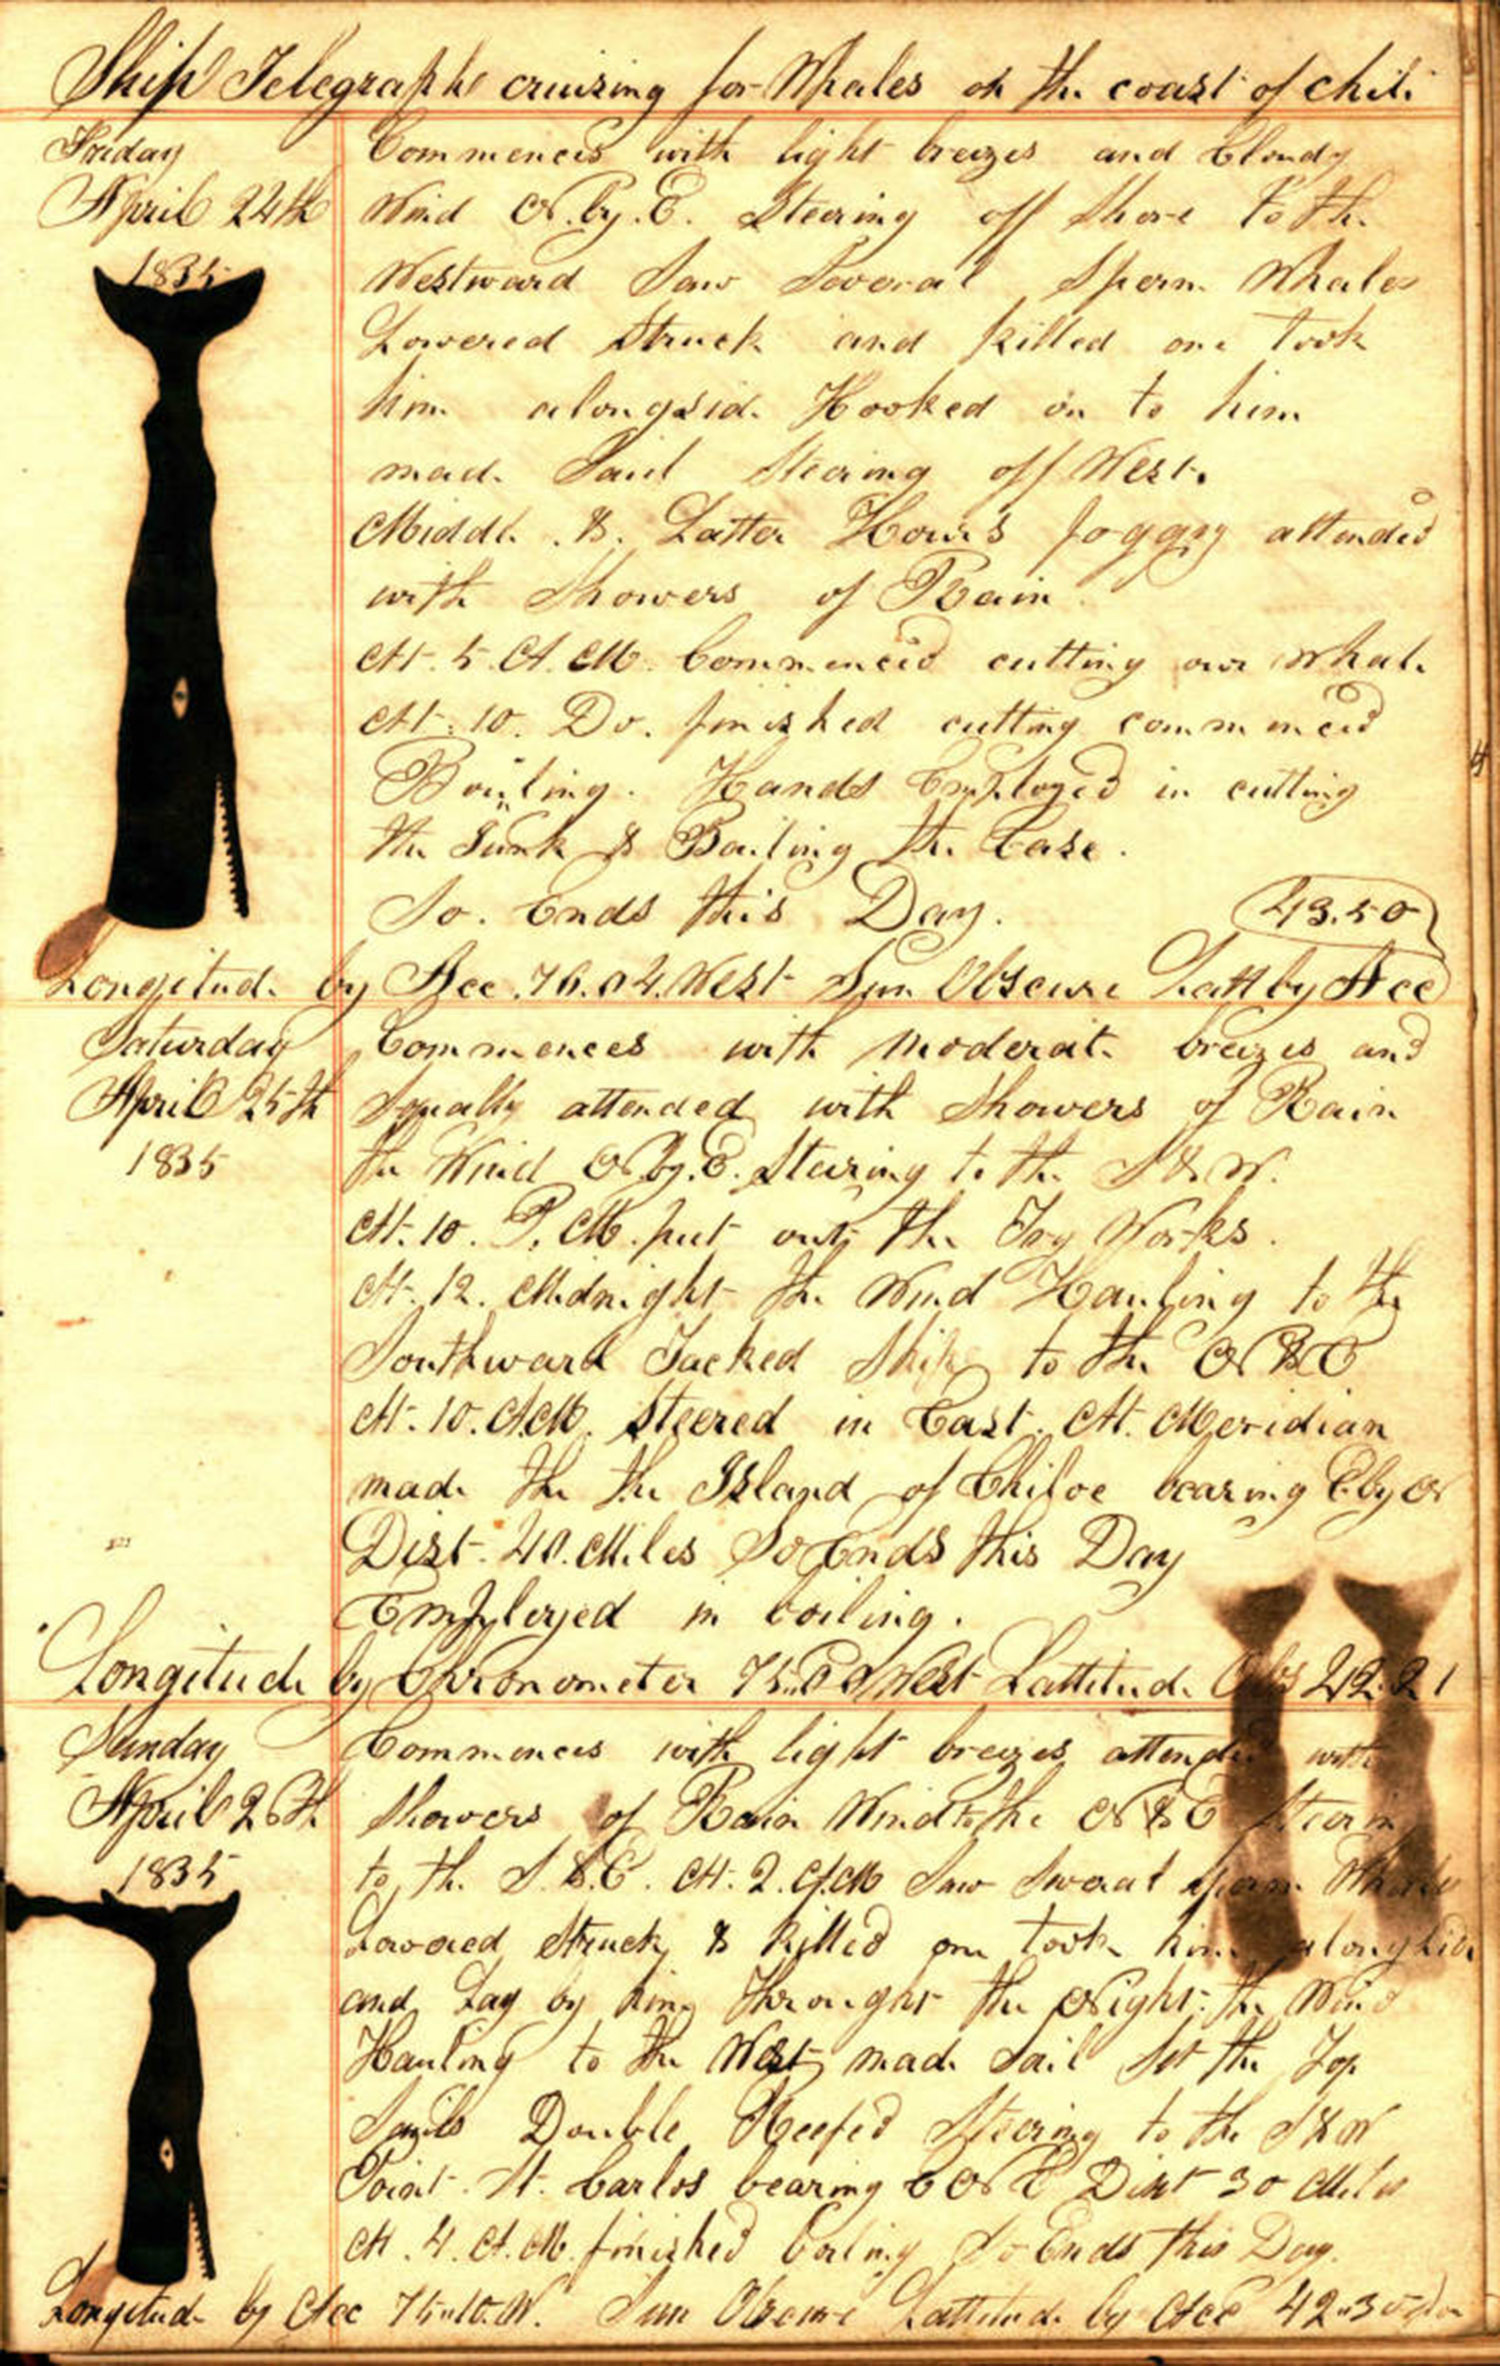 Ship Telegraph cruising for Whales on the coast of Chili
Friday
April 24th
1835
Commences with light breezes and Cloudy
Wind N. by. E. Steering off Shore to the
Westward Saw Several Sperm Whales
Lowered Struck and killed one took
him alongside Hooked on to him
made Sail Stearing off West.
Middle & Latter Hours foggy attended
with Showers of Rain
At. 5. A. M. Commenced cutting our whale
At. 10. Do. finished cutting commenced
Boiling. Hands Employed in cutting
the Junk & Bailing the Case.
So. Ends this Day. 43.50
Longitude by Acc. 76.04. West Sun Obscure Latt by Acc
Saturday
April 25th
1835
Commences with moderate breezes and
Squally attended with Showers of Rain
the Wind N by. E. Stearing to the S & W.
At. 10. P. M. put out the Try Works.
At. 12. Midnight the Wind Hauling to the
Southward Tacked Ship to the N & E
At. 10. A.M. Steered in East. At. Meridian
made the the Island of Chiloe bearing E by N
Dist. 40. Miles So Ends this Day
Employed in boiling.
Longitude by Chronometer West Lattitude Obs 42.21
Sunday
April 26th
1835
Commences with light breezes attended with
Showers of Rain Wind to the N & E Stearin
to the S. & E. At. 2. Saw Sperm Whales
Lowered Struck & killed one took him alongside
and Lay by him throught the Night. the Wind
Hauling to the West made Sail Set the Top
Sails Double Reefed Stearing to the S & W
Point St. Carlos bearing E N E Dist 30 Miles
At. 4. A. M. finished boiling So Ends this Day.
Longitude by Acc 75..10. W. Sun Obscure Lattitude by Acc 42..30